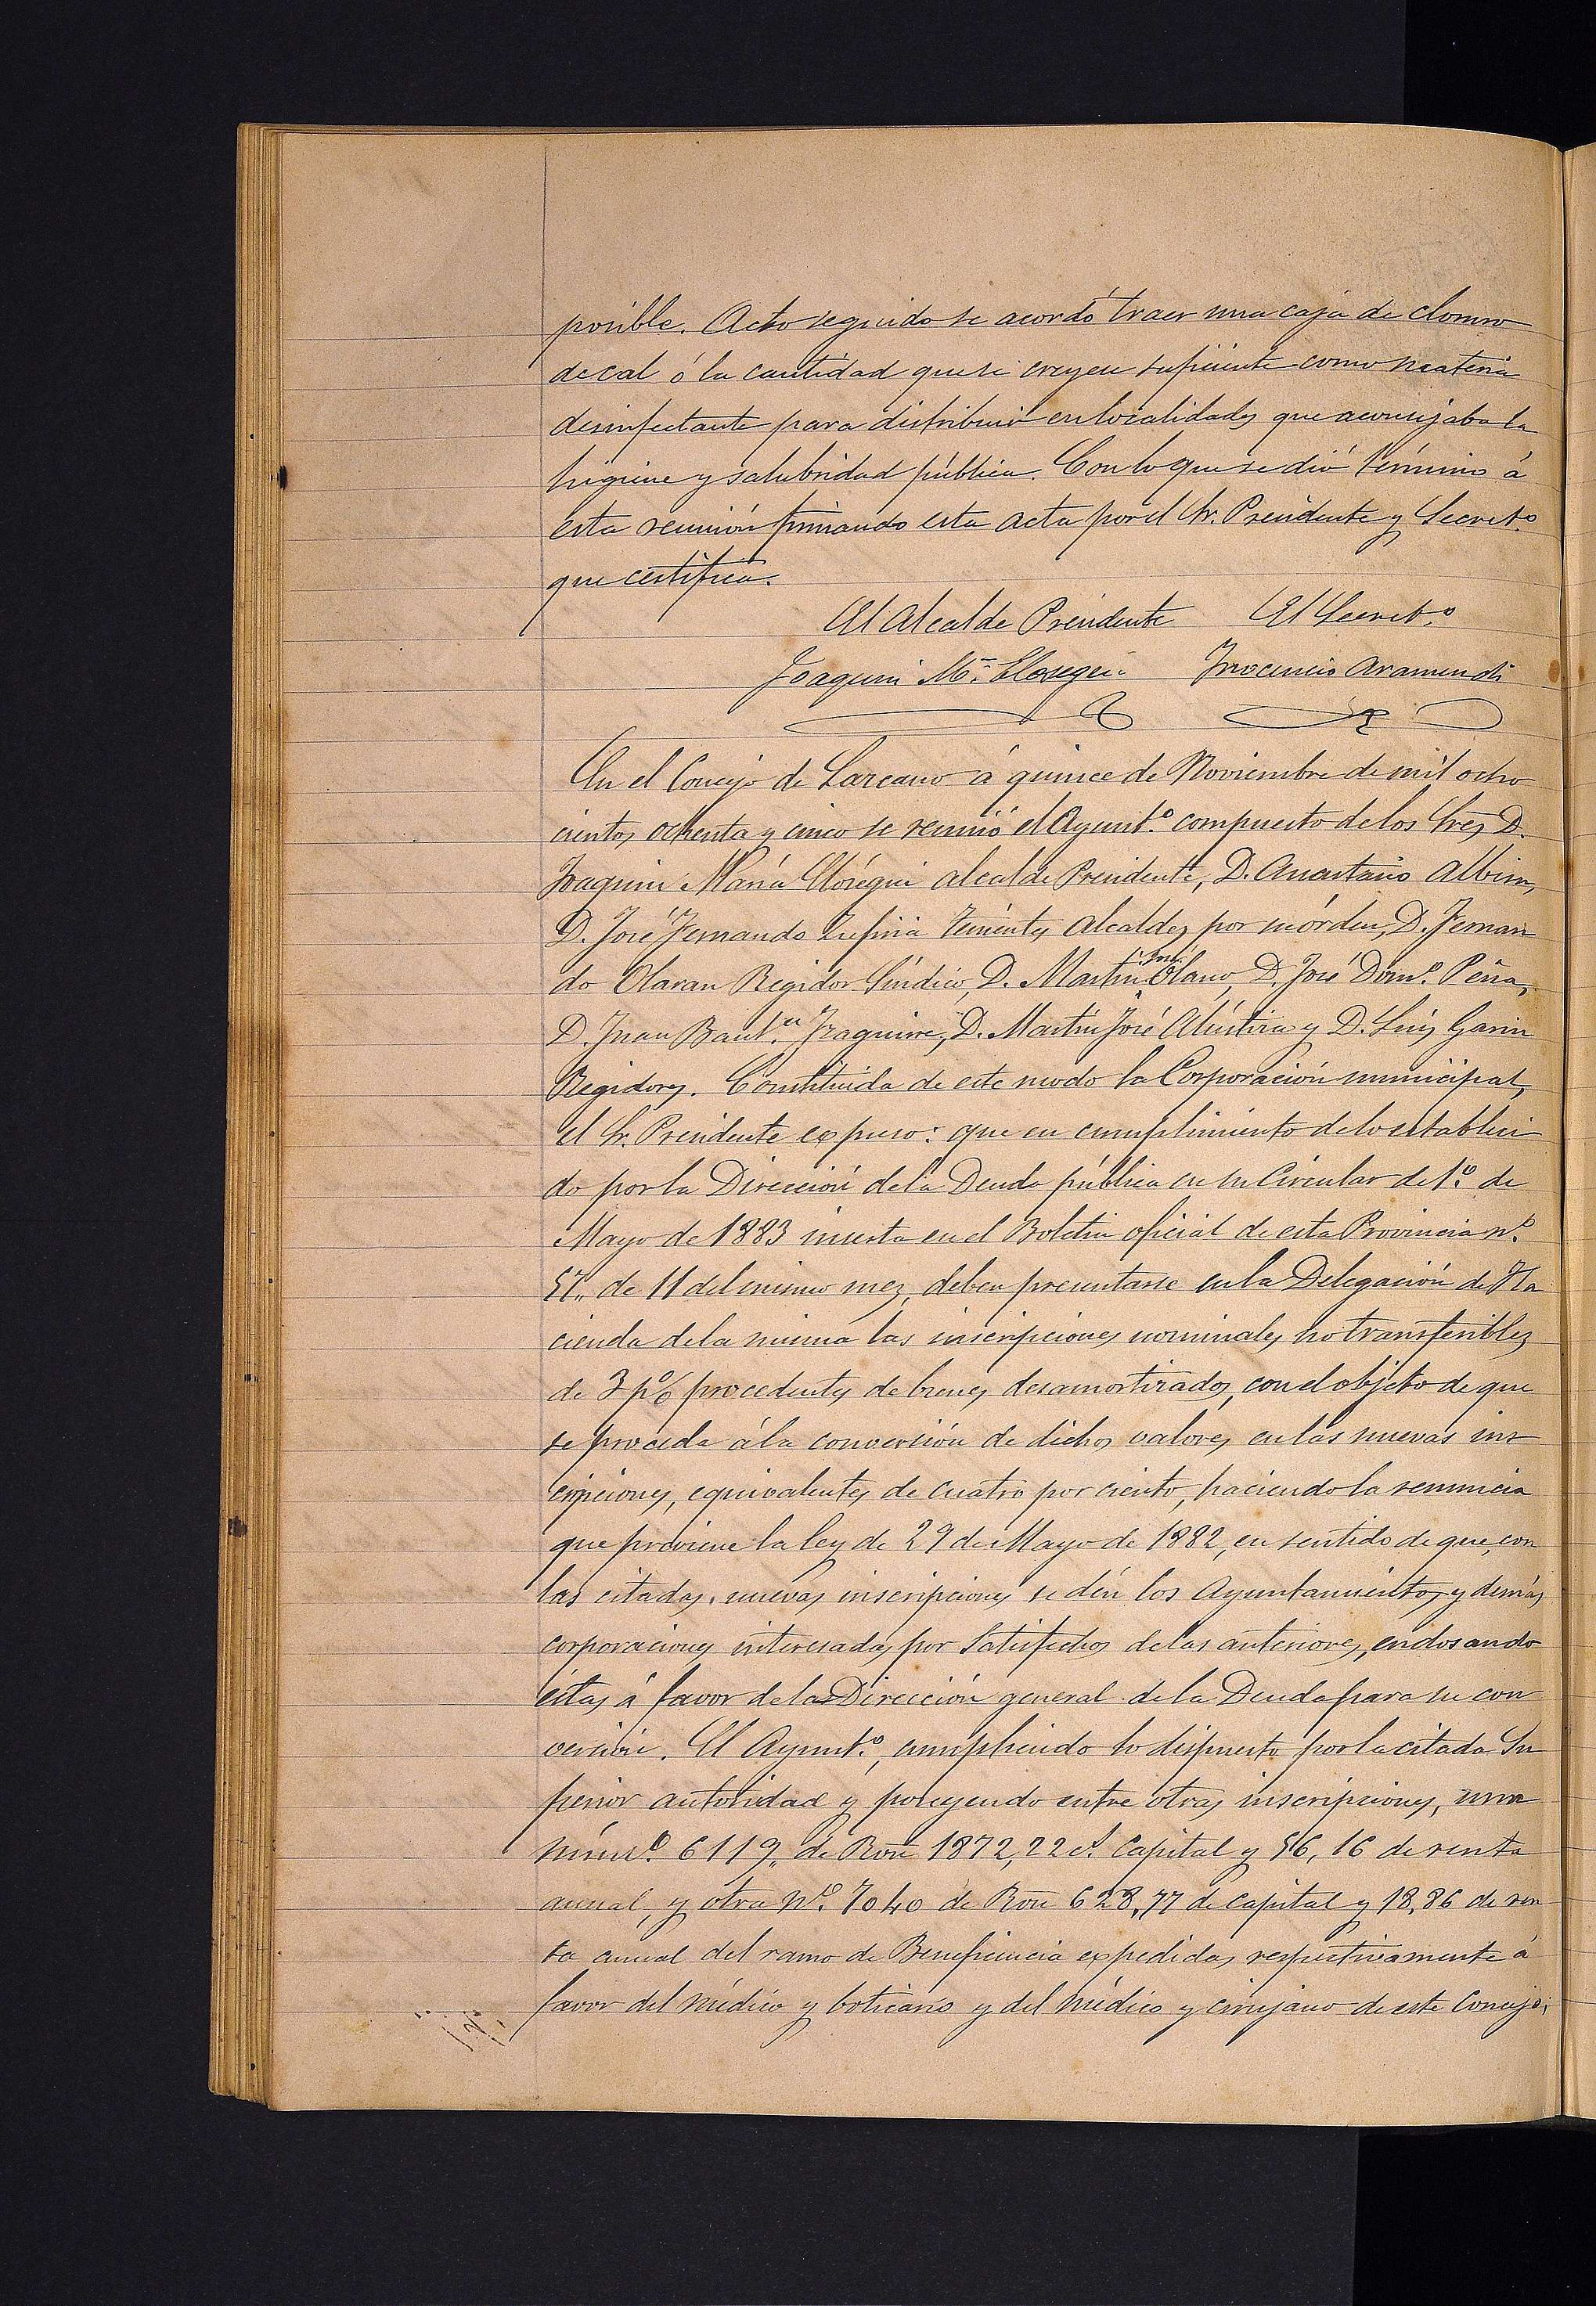 posible. Acto seguido se acordó traer una caja de cloruro
de cal ó la cantidad que se creyere suficiente como materia
desinfectante para distribuir en localidades que aconsejaba la
higiene y salubridad pública. Con lo que se dió término á
esta reunión firmando esta acta por el Sr. Presidente y Secret.º
que certifica.
El Alcalde Presidente El Secret.º
Joaquin M.ª Elosegui Inocencio Aramendi
En el Concejo de Lazcano á quince de Noviembre de mil ocho
cientos ochenta y cinco se reunió el Ayunt.º compuesto de los Sres D.
Joaquin María Elósegui alcalde Presidente, D. Anastasio Albisu,
D. José Fernando Zufiria Tenientes Alcaldes por su órden, D. Fernan
do Olaran Regidor Síndico, D. Martin José Olano, D. José Dom.º Peña,
D. Juan Baut.ta Izaguirre, D. Martin José Alústiza y D. Luis Garin
Regidores. Constituida de este modo la Corporación municipal,
el Sr. Presidente expuso: que en cumplimiento de lo estableci
do por la Dirección de la Deuda pública en su Circular de 1.º de
Mayo de 1883 inserta en el Boletin oficial de esta Provincia n.º
57,, de 11 del mismo mes, deben presentarse en la Delegación de Ha
cienda de la misma las inscripciones nominales no transferibles
de 3 p% procedentes de bienes desamortizados, con el objeto de que
se proceda á la conversión de dichos valores en las nuevas ins
cripciones, equivalentes de cuatro por ciento, haciendo la renuncia
que previene la ley de 29 de Mayo de 1882, en sentido de que, con
las citadas nuevas inscripciones se dén los Ayuntamientos y demás
corporaciones interesadas por Satisfechos de las anteriores, endosando
éstas á favor de la Dirección general de la Deuda para su con
versión. El Ayunt.º, cumpliendo lo dispuesto por la citada Su
perior autoridad y poseyendo entre otras inscripciones, una
núm.º 6119,, de Rvn 1872,22 c.s Capital y 56,16 de renta
anual, y otra N.º 7040 de Rvn 628,77 de capital y 18,86 de ren
ta anual del ramo de Beneficencia expedidas respectivamente á
favor del médico y boticario y del médico y cirujano de este Concejo;